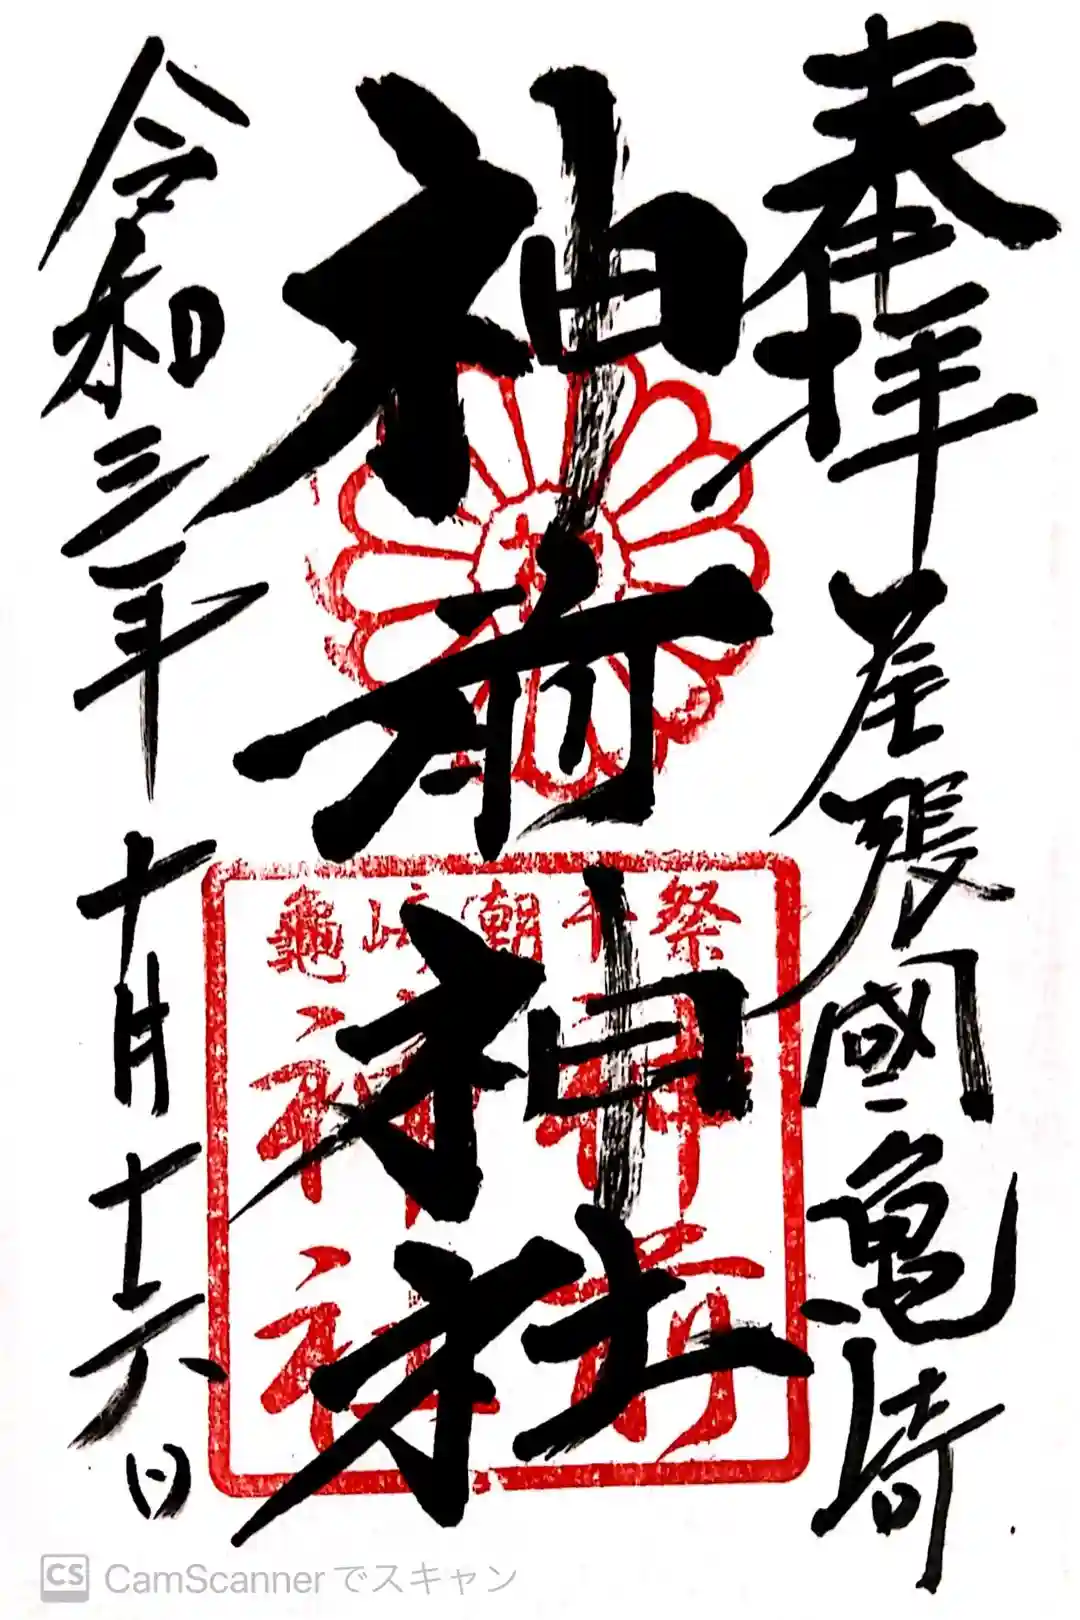 奉拝 尾張國 亀崎
神前神社
令和三年十月十六日
龜崎潮干祭
神前
神社
CS CamScannerでスキャン